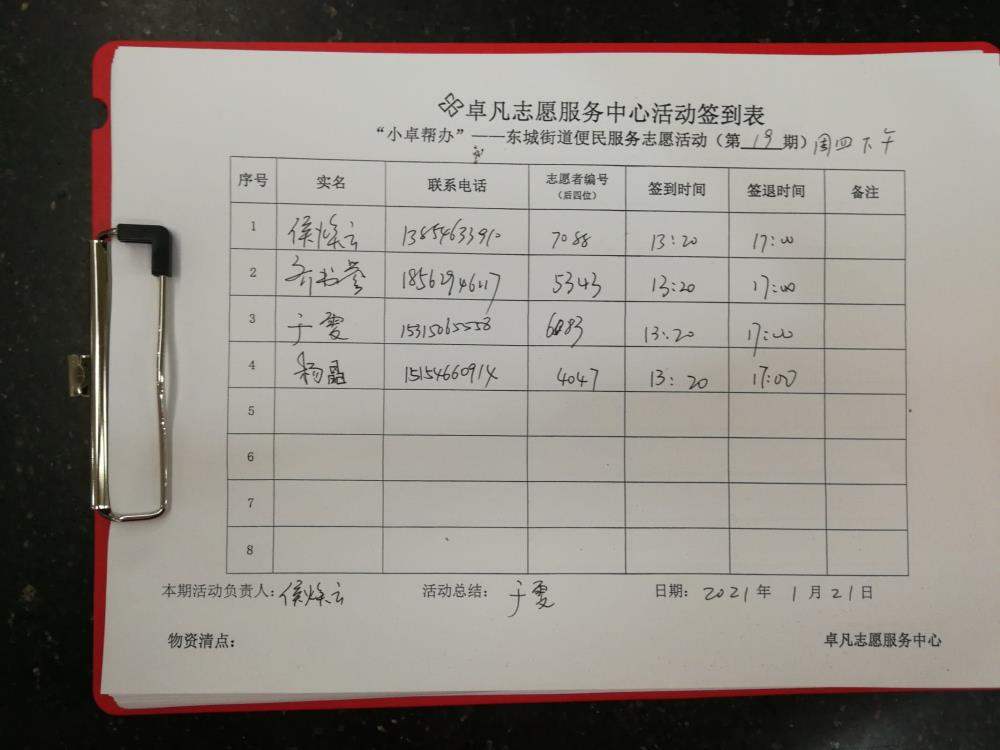 卓凡志愿服务中心活动签到表
“小卓帮办”——东城街道便民服务志愿活动（第19期）周四下午
序号 实名 联系电话 志愿者编号（后四位） 签到时间 签退时间 备注
1 侯焕云 13854633910 7088 13:20 17:00
2 18562946117 5343 13:20 17:00
3 于霞 15315065558 6083 13:20 17:00
4 杨晶 15154660914 4047 13:20 17:00
5
6
7
8
本期活动负责人：侯焕云 活动总结：于霞 日期：2021年1月21日
物资清点： 卓凡志愿服务中心